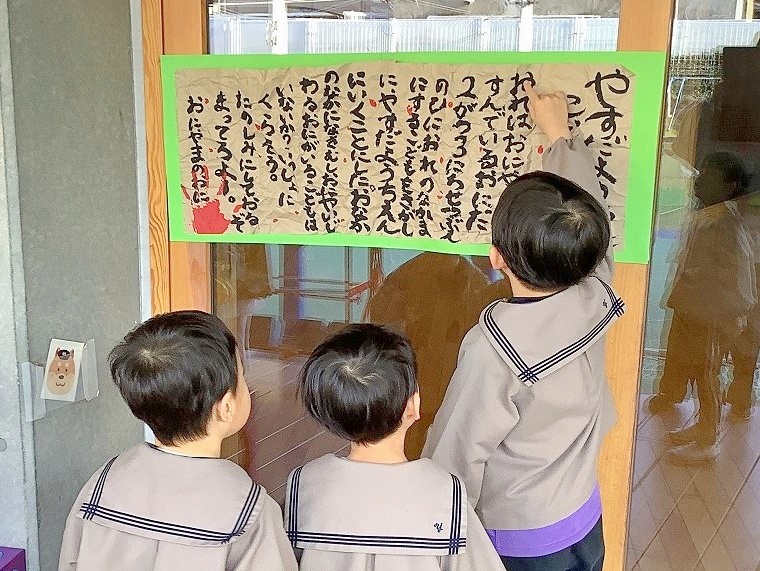 やすだよ
おれはおにや
すんでいるおにだ
2がつ3にちせつぶん
のひにおれのなかま
にするこどもをさがし
にやすだようちえん
にいくことにした。おなか
のなかになきむしおにやいじ
わるおにがいるこどもは
いないか?いっしょに
くらそう。
たのしみにしておるぞ
まってろよー。
おにやまのおに